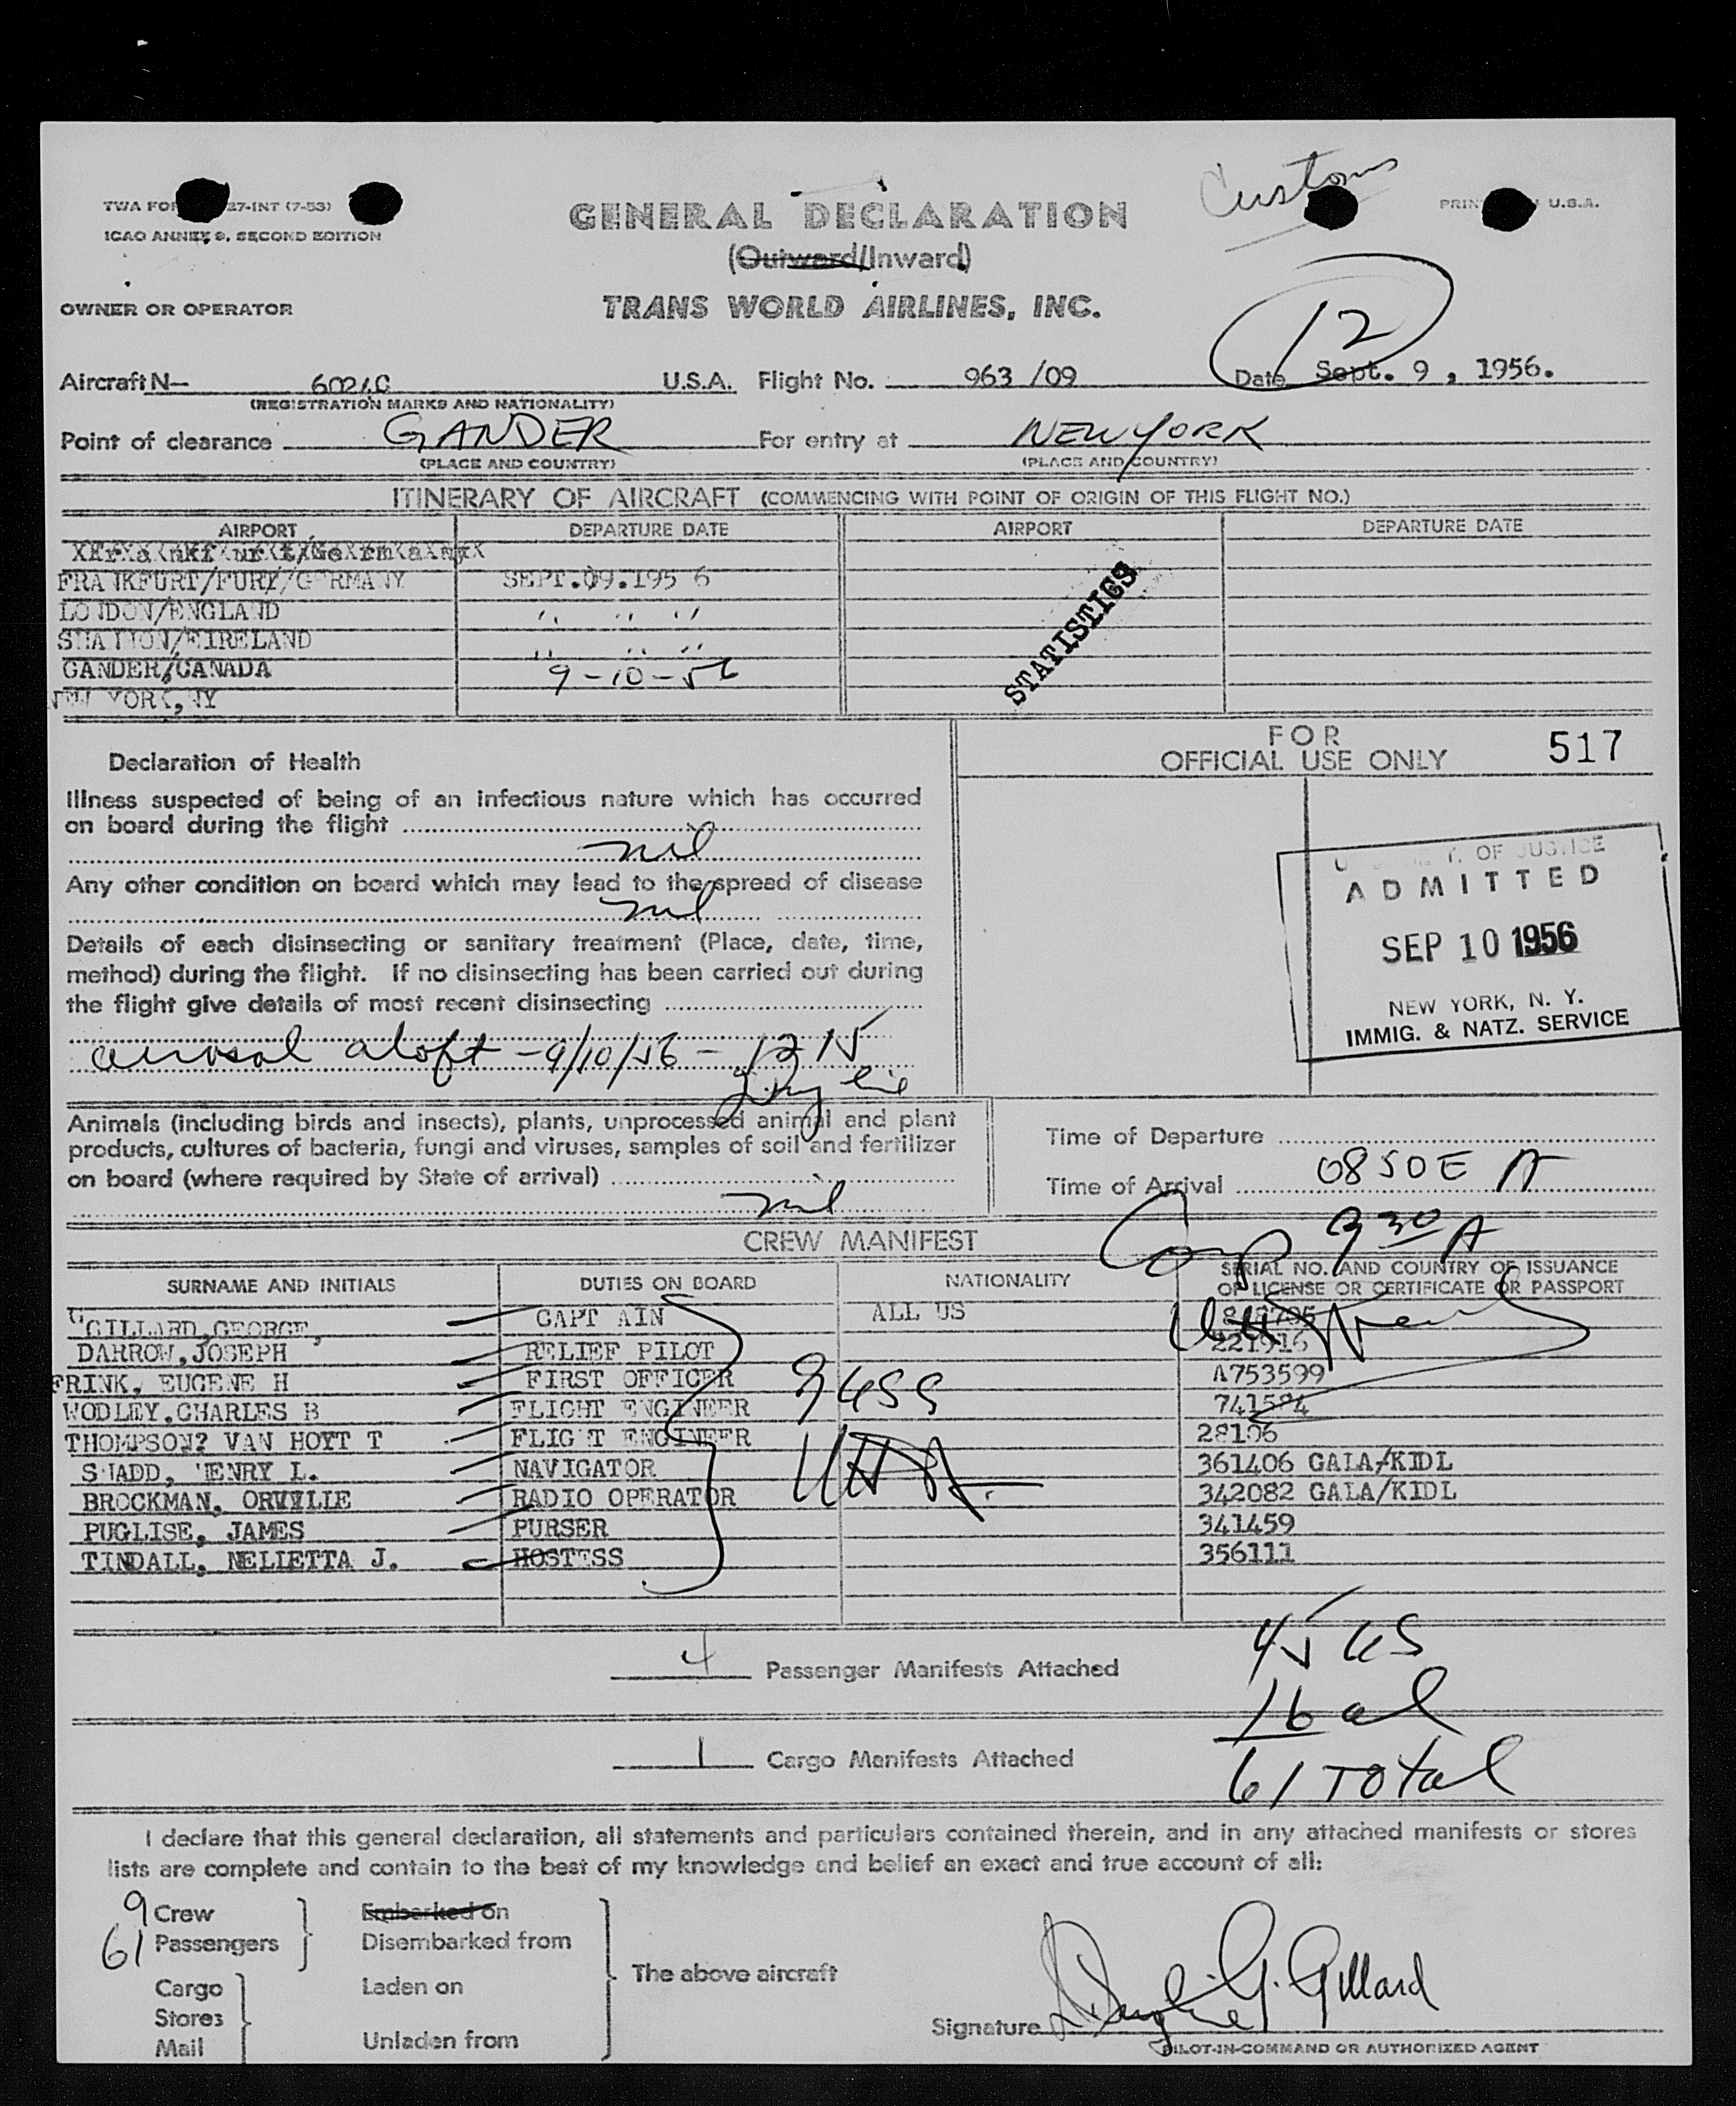 Customs
TWA FOR 27-INT (7-53)
PRIN U.S.A.
ICAO ANNEX 9, SECOND EDITION
GENERAL DECLARATION
(Outward/Inward)
OWNER OR OPERATOR
TRANS WORLD AIRLINES, INC.
12
Aircraft N— U.S.A. Flight No. 963 /09 Date Sept. 9, 1956.
(REGISTRATION MARKS AND NATIONALITY)
Point of clearance GANDER For entry at NEW YORK
(PLACE AND COUNTRY) (PLACE AND COUNTRY)
ITINERARY OF AIRCRAFT (COMMENCING WITH POINT OF ORIGIN OF THIS FLIGHT NO.)
AIRPORT DEPARTURE DATE AIRPORT DEPARTURE DATE
FRANKFURT/FURT/GERMANY SEPT.09.195 6
LONDON/ENGLAND " " "
SHANNON/EIRELAND " " "
GANDER/CANADA 9-10-56
NEW YORK, NY
STATISTICS
FOR
OFFICIAL USE ONLY 517
Declaration of Health
Illness suspected of being of an infectious nature which has occurred
on board during the flight
nil
Any other condition on board which may lead to the spread of disease
nil
Details of each disinsecting or sanitary treatment (Place, date, time,
method) during the flight. If no disinsecting has been carried out during
the flight give details of most recent disinsecting
aerosol aloft - 9/10/56 - 1215
OF JUSTICE
ADMITTED
SEP 10 1956
NEW YORK, N. Y.
IMMIG. & NATZ. SERVICE
Animals (including birds and insects), plants, unprocessed animal and plant
products, cultures of bacteria, fungi and viruses, samples of soil and fertilizer
on board (where required by State of arrival)
nil
Time of Departure
Time of Arrival 0850E A
Comp 930 A
CREW MANIFEST
SURNAME AND INITIALS DUTIES ON BOARD NATIONALITY SERIAL NO. AND COUNTRY OF ISSUANCE
OF LICENSE OR CERTIFICATE OR PASSPORT
GILLARD, GEORGE, CAPT AIN ALL US
DARROW, JOSEPH RELIEF PILOT 221916
FRINK, EUGENE H FIRST OFFICER A753599
WODLEY.CHARLES B FLIGHT ENGINEER 741584
THOMPSON? VAN HOYT T FLIGHT ENGINEER 28106
SHADD, HENRY L. NAVIGATOR 361406 GALA/KIDL
BROCKMAN, ORVILLE RADIO OPERATOR 342082 GALA/KIDL
PUGLISE, JAMES PURSER 341459
TINDALL, NELIETTA J. HOSTESS 356111
4 Passenger Manifests Attached
45 US
16 al
61 Total
1 Cargo Manifests Attached
I declare that this general declaration, all statements and particulars contained therein, and in any attached manifests or stores
lists are complete and contain to the best of my knowledge and belief an exact and true account of all:
9 Crew Embarked on
61 Passengers Disembarked from
Cargo Laden on The above aircraft
Stores
Mail Unladen from
Signature G. Gillard
PILOT-IN-COMMAND OR AUTHORIZED AGENT